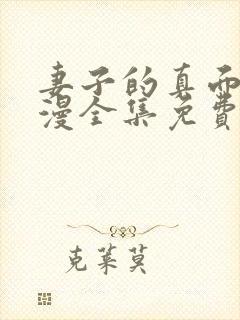 妻子的真面
漫全集免费
克莱莫